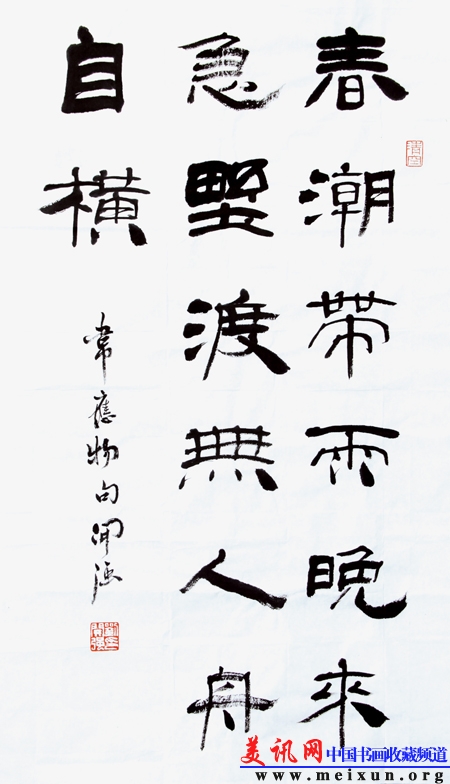 春潮帶雨晚來
急野渡無人舟
自橫
韋應物句
美讯网 中国书画收藏频道
www.meixun.org